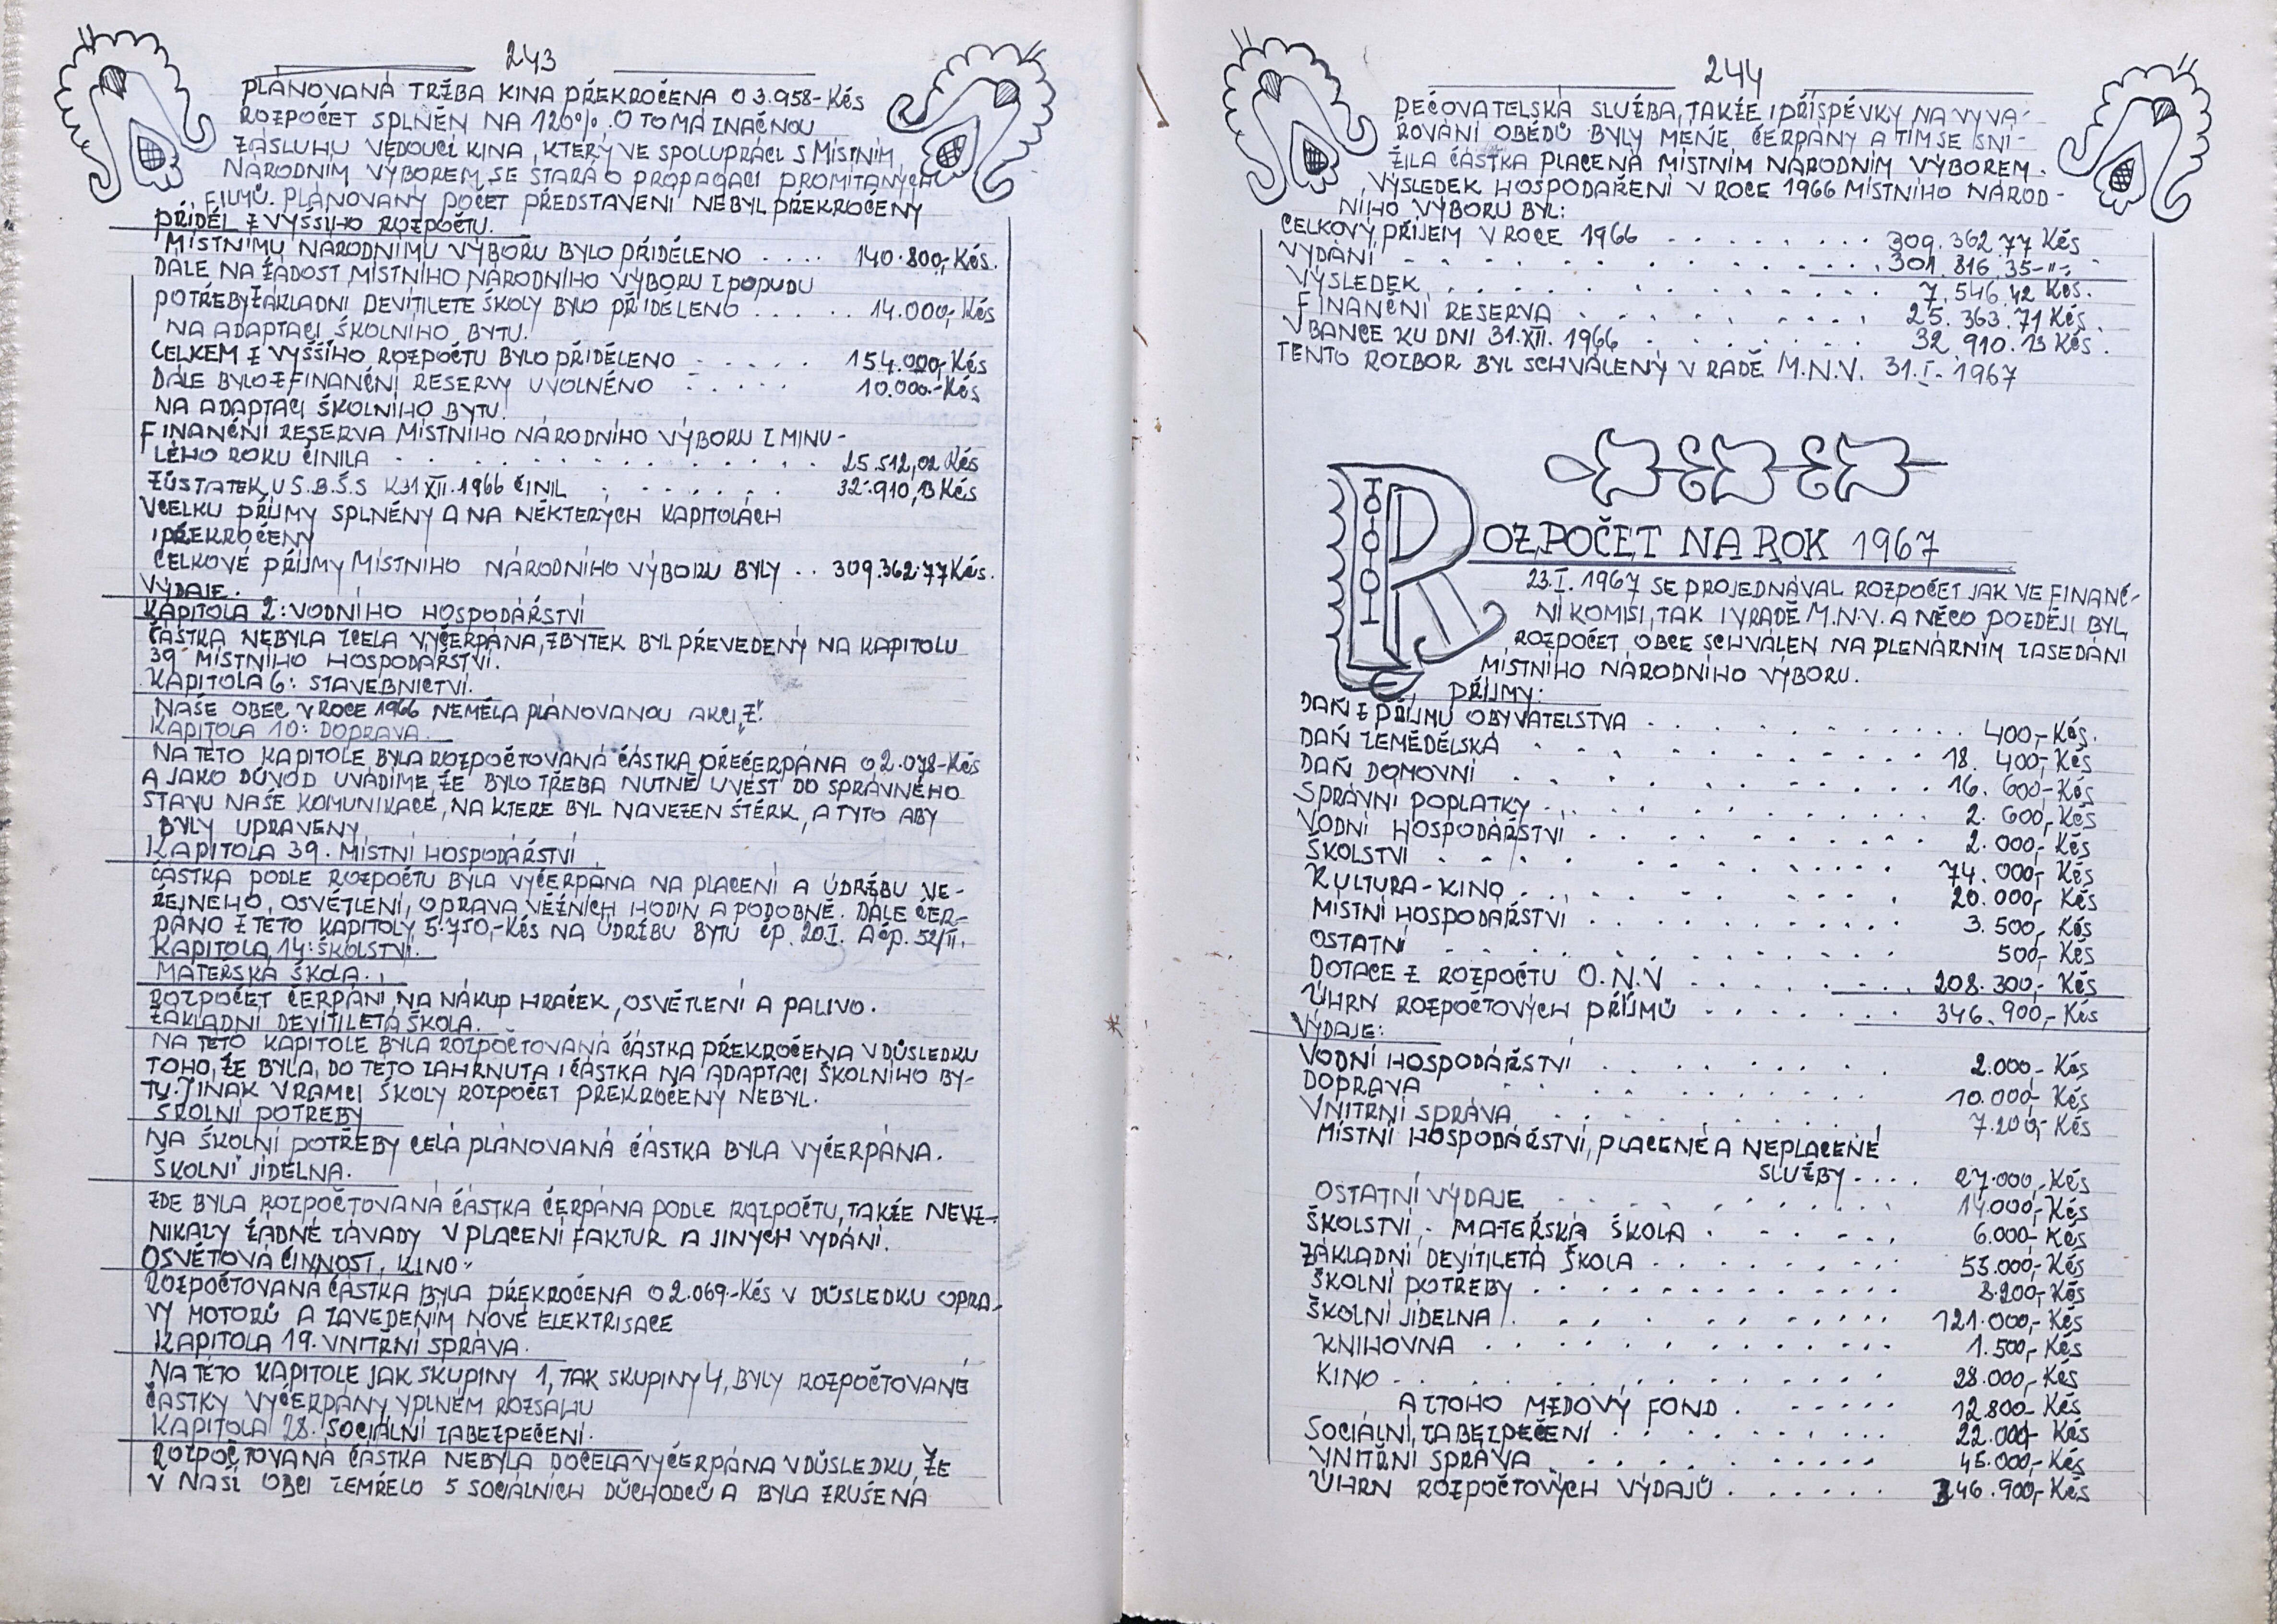 243
PLÁNOVANÁ TRŽBA KINA PŘEKROČENA O 3.958-Kčs
ROZPOČET SPLNĚN NA 120%. O TO MÁ ZNAČNOU
ZÁSLUHU VEDOUCÍ KINA, KTERÝ VE SPOLUPRÁCI S MÍSTNÍM
NÁRODNÍM VÝBOREM SE STARÁ O PROPAGACI PROMÍTANÝCH
FILMŮ. PLÁNOVANÝ POČET PŘEDSTAVENÍ NEBYL PŘEKROČENÝ
PŘÍDĚL Z VYŠŠÍHO ROZPOČTU.
MÍSTNÍMU NÁRODNÍMU VÝBORU BYLO PŘIDĚLENO .... 140.800,-Kčs.
DÁLE NA ŽÁDOST MÍSTNÍHO NÁRODNÍHO VÝBORU Z POPUDU
POTŘEBY ZÁKLADNÍ DEVÍTILETÉ ŠKOLY BYLO PŘIDĚLENO ...... 14.000,-Kčs
NA ADAPTACI ŠKOLNÍHO BYTU.
CELKEM Z VYŠŠÍHO ROZPOČTU BYLO PŘIDĚLENO ..... 154.000,-Kčs
DÁLE BYLO Z FINANČNÍ RESERVY UVOLNĚNO ..... 10.000.-Kčs
NA ADAPTACI ŠKOLNÍHO BYTU.
FINANČNÍ RESERVA MÍSTNÍHO NÁRODNÍHO VÝBORU Z MINU-
LÉHO ROKU ČINILA .............. 25.512,02 Kčs
ZŮSTATEK U S.B.Š.S K 31 XII. 1966 ČINIL ....... 32.910,13 Kčs
VCELKU PŘÍJMY SPLNĚNY A NA NĚKTERÝCH KAPITOLÁCH
I PŘEKROČENY
CELKOVÉ PŘÍJMY MÍSTNÍHO NÁRODNÍHO VÝBORU BYLY .. 309.362.77 Kčs.
VÝDAJE.
KAPITOLA 2: VODNÍHO HOSPODÁŘSTVÍ
ČÁSTKA NEBYLA ZCELA VYČERPÁNA, ZBYTEK BYL PŘEVEDENÝ NA KAPITOLU
39 MÍSTNÍHO HOSPODÁŘSTVÍ.
KAPITOLA 6: STAVEBNICTVÍ.
NAŠE OBEC V ROCE 1966 NEMĚLA PLÁNOVANOU AKCI „Z".
KAPITOLA 10: DOPRAVA.
NA TÉTO KAPITOLE BYLA ROZPOČTOVANÁ ČÁSTKA PŘEČERPÁNA O 2.078-Kčs
A JAKO DŮVOD UVÁDÍME, ŽE BYLO TŘEBA NUTNĚ UVÉST DO SPRÁVNÉHO
STAVU NAŠE KOMUNIKACE, NA KTERÉ BYL NAVEZEN ŠTĚRK, A TYTO ABY
BYLY UPRAVENY.
KAPITOLA 39. MÍSTNÍ HOSPODÁŘSTVÍ
ČÁSTKA PODLE ROZPOČTU BYLA VYČERPÁNA NA PLACENÍ A ÚDRŽBU VE-
ŘEJNÉHO, OSVĚTLENÍ, OPRAVA VĚŽNÍCH HODIN A PODOBNĚ. DÁLE ČER-
PÁNO Z TÉTO KAPITOLY 5.750,-Kčs NA ÚDRŽBU BYTŮ ČP. 20 I. A ČP. 52/II.
KAPITOLA 14: ŠKOLSTVÍ.
MATEŘSKÁ ŠKOLA.
ROZPOČET ČERPÁNÍ NA NÁKUP HRAČEK, OSVĚTLENÍ A PALIVO.
ZÁKLADNÍ DEVÍTILETÁ ŠKOLA.
NA TÉTO KAPITOLE BYLA ROZPOČTOVANÁ ČÁSTKA PŘEKROČENA V DŮSLEDKU
TOHO, ŽE BYLA, DO TÉTO ZAHRNUTA I ČÁSTKA NA ADAPTACI ŠKOLNÍHO BY-
TU. JINAK V RÁMCI ŠKOLY ROZPOČET PŘEKROČENÝ NEBYL.
ŠKOLNÍ POTŘEBY
NA ŠKOLNÍ POTŘEBY CELÁ PLÁNOVANÁ ČÁSTKA BYLA VYČERPÁNA.
ŠKOLNÍ JÍDELNA.
ZDE BYLA ROZPOČTOVANÁ ČÁSTKA ČERPÁNA PODLE ROZPOČTU, TAKŽE NEVZ-
NIKALY ŽÁDNÉ ZÁVADY V PLACENÍ FAKTUR A JINÝCH VYDÁNÍ.
OSVĚTOVÁ ČINNOST, KINO.
ROZPOČTOVANÁ ČÁSTKA BYLA PŘEKROČENA O 2.069.-Kčs V DŮSLEDKU OPRA-
VY MOTORŮ A ZAVEDENÍM NOVÉ ELEKTRISACE
KAPITOLA 19. VNITŘNÍ SPRÁVA.
NA TÉTO KAPITOLE JAK SKUPINY 1, TAK SKUPINY 4, BYLY ROZPOČTOVANÉ
ČÁSTKY VYČERPÁNY V PLNÉM ROZSAHU
KAPITOLA 28. SOCIÁLNÍ ZABEZPEČENÍ.
ROZPOČTOVANÁ ČÁSTKA NEBYLA DOCELA VYČERPÁNA V DŮSLEDKU, ŽE
V NAŠÍ OBCI ZEMŘELO 5 SOCIÁLNÍCH DŮCHODCŮ A BYLA ZRUŠENA
244
PEČOVATELSKÁ SLUŽBA, TAKŽE I PŘÍSPĚVKY NA VYVA-
ŘOVÁNÍ OBĚDŮ BYLY MÉNĚ ČERPÁNY A TÍM SE SNÍ-
ŽILA ČÁSTKA PLACENÁ MÍSTNÍM NÁRODNÍM VÝBOREM.
VÝSLEDEK HOSPODAŘENÍ V ROCE 1966 MÍSTNÍHO NÁROD-
NÍHO VÝBORU BYL:
CELKOVÝ PŘÍJEM V ROCE 1966 ........ 309.362.77 Kčs
VYDÁNÍ .............. 301.816.35-"-
VÝSLEDEK ............ 7.546.42 Kčs.
FINANČNÍ RESERVA ......... 25.363.71 Kčs.
V BANCE KU DNI 31.XII. 1966 ........ 32.910.13 Kčs.
TENTO ROZBOR BYL SCHVÁLENÝ V RADĚ M.N.V. 31.I. 1967
ROZPOČET NA ROK 1967
23.I. 1967 SE PROJEDNÁVAL ROZPOČET JAK VE FINANČ-
NÍ KOMISI, TAK I V RADĚ M.N.V. A NĚCO POZDĚJI BYL
ROZPOČET OBCE SCHVÁLEN NA PLENÁRNÍM ZASEDÁNÍ
MÍSTNÍHO NÁRODNÍHO VÝBORU.
PŘÍJMY:
DAŇ Z PŘÍJMU OBYVATELSTVA ............ 400,-Kčs.
DAŇ ZEMĚDĚLSKÁ ............ 18. 400,-Kčs
DAŇ DOMOVNÍ ............ 16. 600,-Kčs
SPRÁVNÍ POPLATKY ............ 2. 600,-Kčs
VODNÍ HOSPODÁŘSTVÍ .......... 2. 000,-Kčs
ŠKOLSTVÍ ............ 74. 000,-Kčs
KULTURA-KINO ............ 20. 000,- Kčs
MÍSTNÍ HOSPODÁŘSTVÍ .......... 3. 500,-Kčs
OSTATNÍ ............ 500,-Kčs
DOTACE Z ROZPOČTU O.N.V ......... 208. 300,-Kčs
ÚHRN ROZPOČTOVÝCH PŘÍJMŮ ....... 346. 900,-Kčs
VÝDAJE:
VODNÍ HOSPODÁŘSTVÍ ......... 2.000,-Kčs
DOPRAVA ........... 10.000,-Kčs
VNITŘNÍ SPRÁVA .......... 7.200,-Kčs
MÍSTNÍ HOSPODÁŘSTVÍ, PLACENÉ A NEPLACENÉ
SLUŽBY .... 27.000,-Kčs
OSTATNÍ VÝDAJE .......... 14.000,-Kčs
ŠKOLSTVÍ, MATEŘSKÁ ŠKOLA ...... 6.000,-Kčs
ZÁKLADNÍ DEVÍTILETÁ ŠKOLA ........ 53.000,-Kčs
ŠKOLNÍ POTŘEBY ............ 8.200,-Kčs
ŠKOLNÍ JÍDELNA ............ 121.000,-Kčs
KNIHOVNA ............ 1.500,-Kčs
KINO ............ 28.000,-Kčs
A Z TOHO MZDOVÝ FOND ...... 12.800,-Kčs
SOCIÁLNÍ ZABEZPEČENÍ .......... 22.000,-Kčs
VNITŘNÍ SPRÁVA .......... 45.000,-Kčs
ÚHRN ROZPOČTOVÝCH VÝDAJŮ ...... 346.900,-Kčs